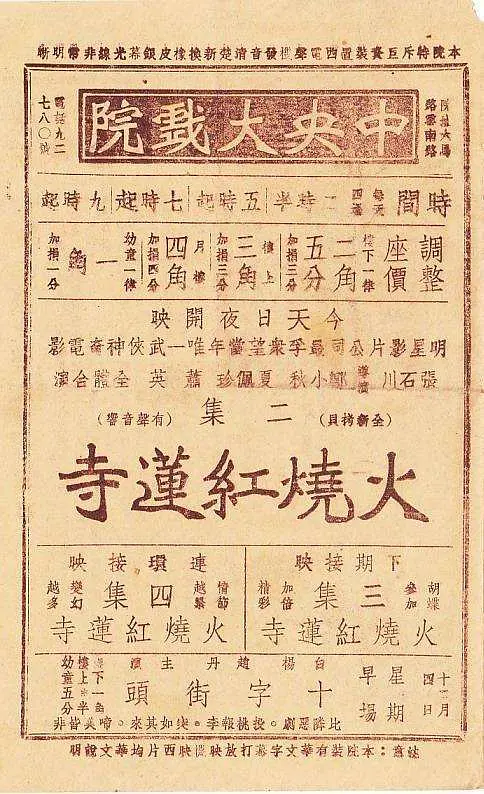 本院特斥巨資裝置西電聲機發音清楚新換橡皮銀幕光線非常明晰
院址六馬路雲南路
中央大戲院
電話九二七八〇號
時間 每天四場 二時半 五時起 七時起 九時起
調整座價 樓下一律 二角五分 加捐三分 樓上 三角 加捐三分 月樓 四角 加捐四分 幼童一律 一角 加捐一分
今天日夜開映
明星影片公司最孚衆望當年唯一武俠神奇電影
張石川導演 鄭小秋 夏佩珍 蕭英 全體合演
(全新拷貝) 二集 (有聲音響)
火燒紅蓮寺
下期接映
胡蝶參加 三集 加倍精彩
火燒紅蓮寺
連環接映
情節越緊 四集 變幻越多
火燒紅蓮寺
月四日
星期早場
白楊 趙丹 主演
十字街頭
樓下一角
樓上角半
幼童五分
惡劇。投桃報李。突如其來。啼笑皆非
注意：本院裝有華文字幕打放映機映西片均華文說明